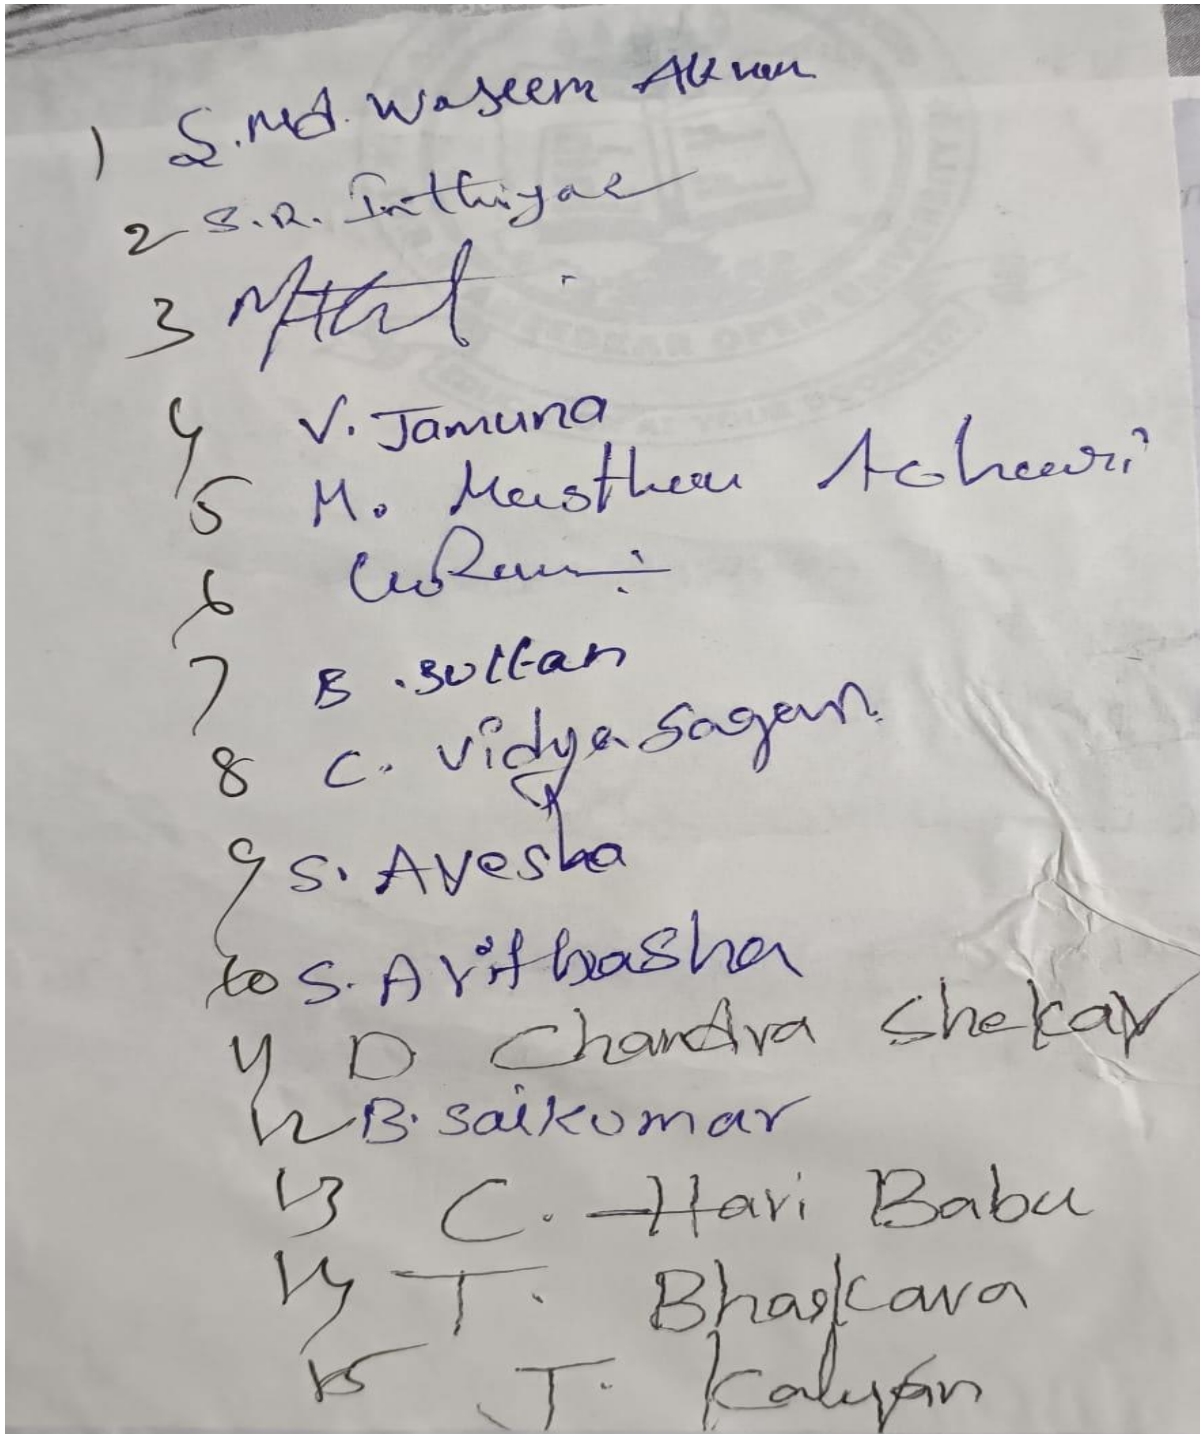 1) S.Md. Waseem Akram
2 S.R. Inthiyaz
3
4 V. Jamuna
5 M. Masthan Achari
6
7 B. Sultan
8 C. Vidya Sagar
9 S. Ayesha
10 S. Arifbasha
11 D Chandra Shekar
12 B. Saikumar
13 C. Hari Babu
14 T. Bhaskara
15 J. Kalyan